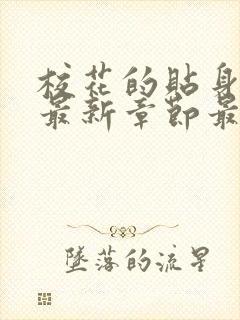 校花的贴身
最新章节最
坠落的流星